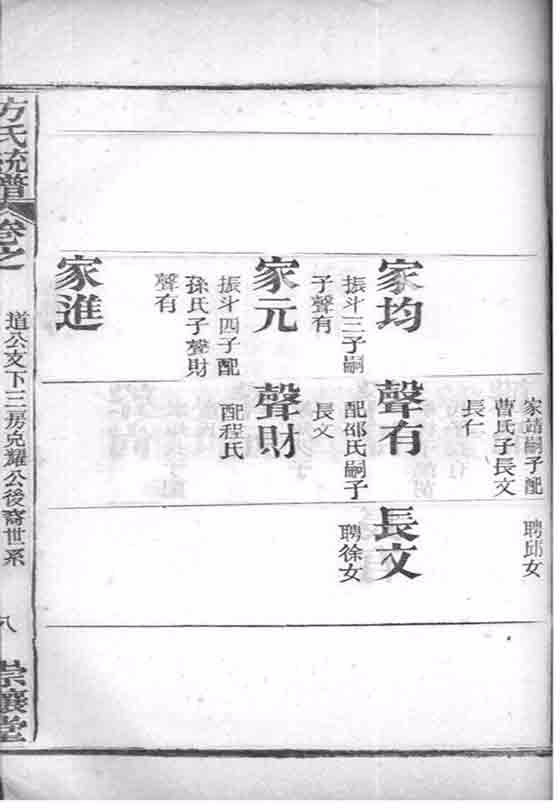 家靖嗣子配
曹氏子長文
長仁
聘邱女
家均
振斗三子嗣
子聲有
聲有
配邵氏嗣子
長文
長文
聘徐女
家元
振斗四子配
孫氏子聲財
聲有
聲財
配程氏
家進
方氏統譜
卷之
道公支下三房克耀公後裔世系
八
崇讓堂